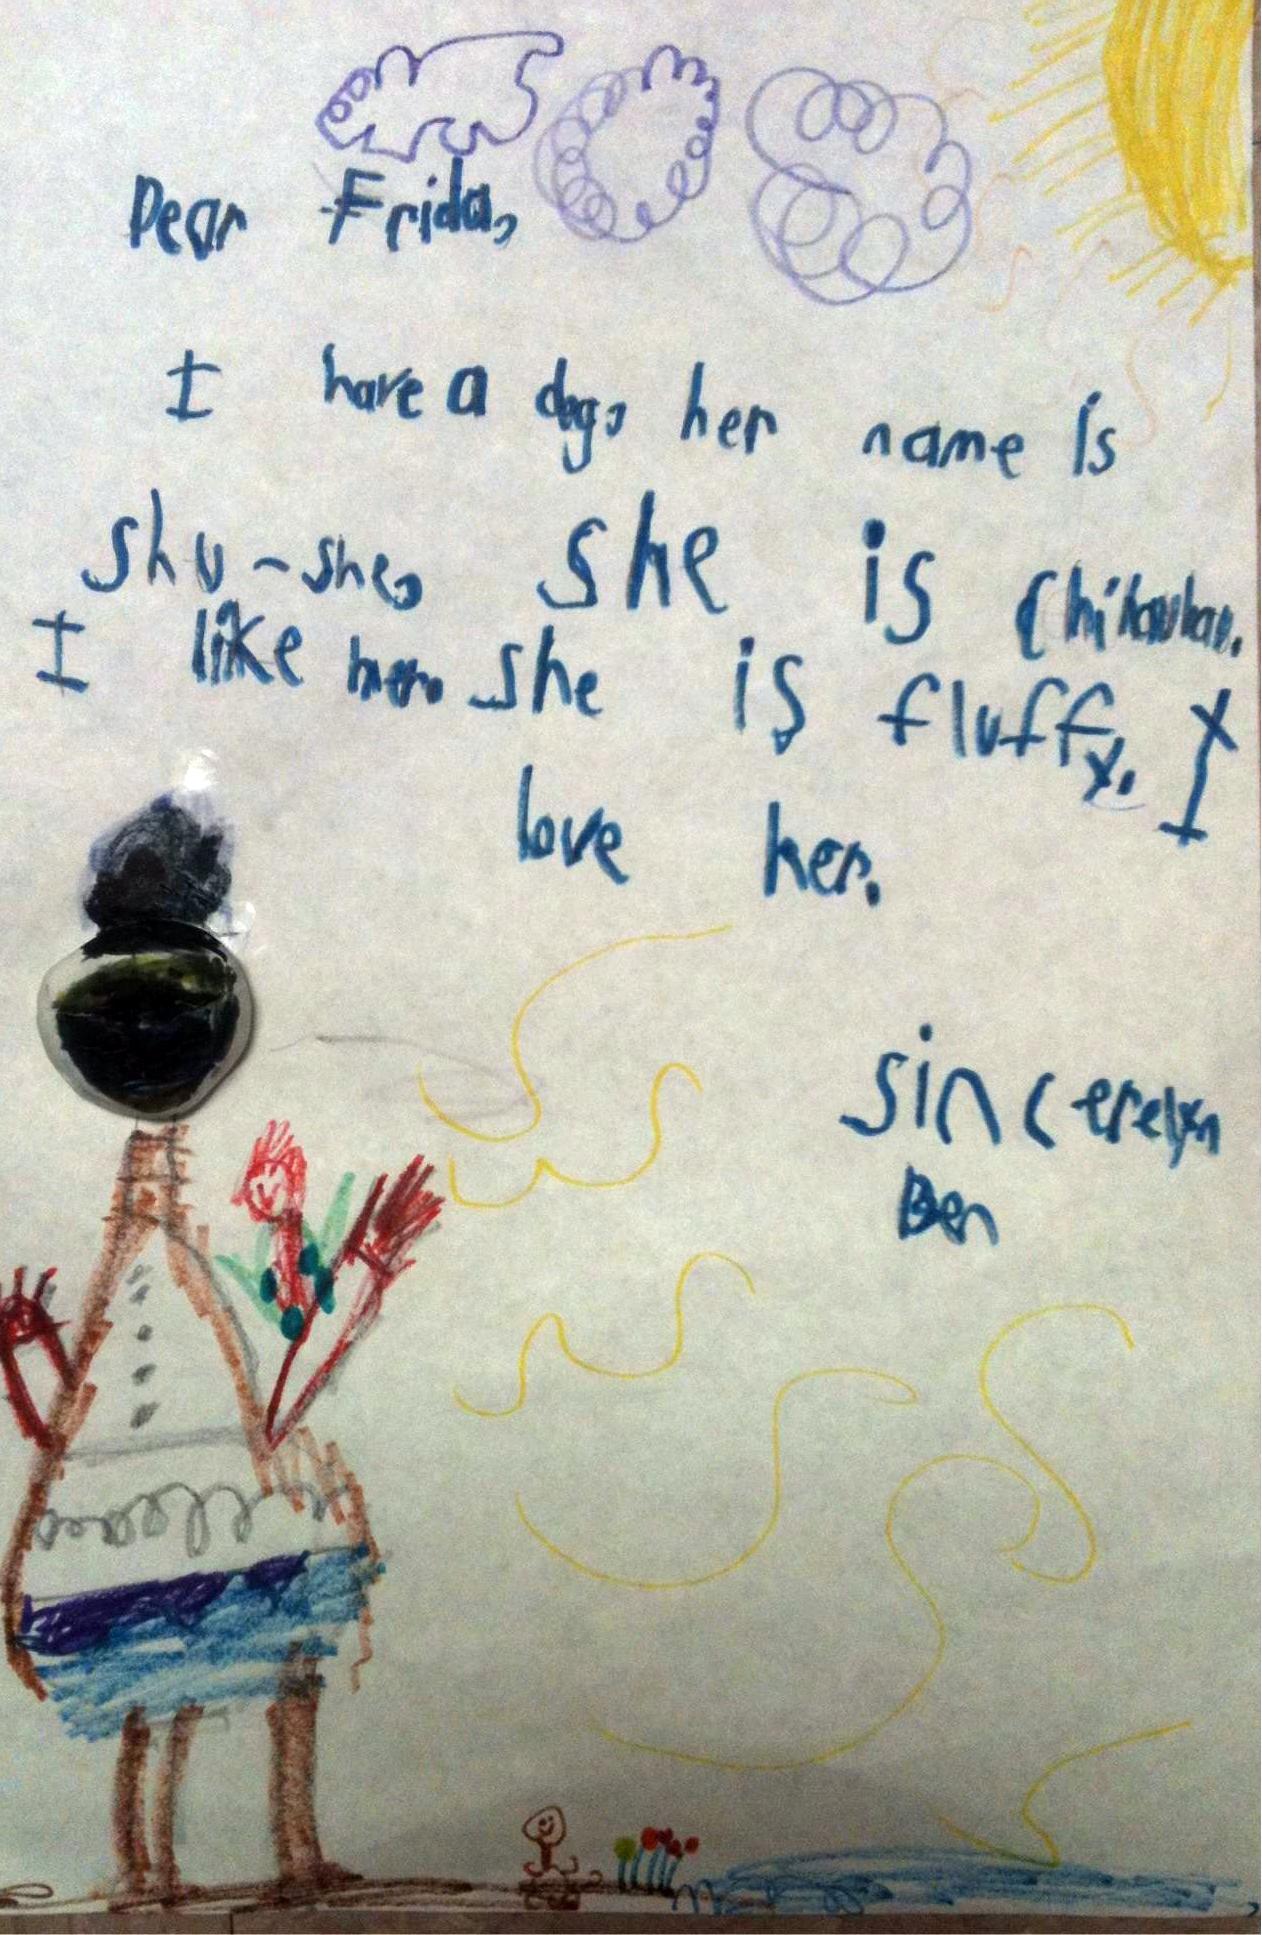 Dear Frida,
I have a dog, her name is
shu-she, she is Chihauhau.
I like her. she is fluffy. I
love her.
sincerely,
Ben